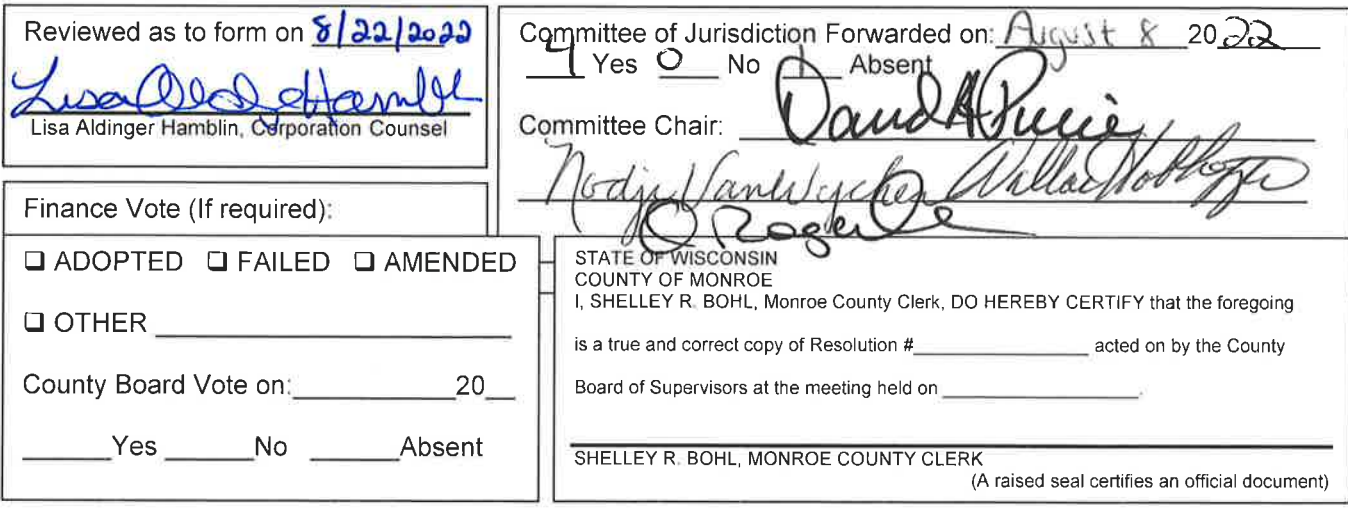 Reviewed as to form on 8/22/2022
Lisa Aldinger Hamblin
Lisa Aldinger Hamblin, Corporation Counsel
Finance Vote (If required):
Committee of Jurisdiction Forwarded on: August 8 2022
4 Yes 0 No 1 Absent
Committee Chair: David A Pierce
Nodji VanWychen
❑ ADOPTED ❑ FAILED ❑ AMENDED
❑ OTHER
County Board Vote on: 20
Yes No Absent
STATE OF WISCONSIN
COUNTY OF MONROE
I, SHELLEY R. BOHL, Monroe County Clerk, DO HEREBY CERTIFY that the foregoing
is a true and correct copy of Resolution # acted on by the County
Board of Supervisors at the meeting held on .
SHELLEY R. BOHL, MONROE COUNTY CLERK
(A raised seal certifies an official document)